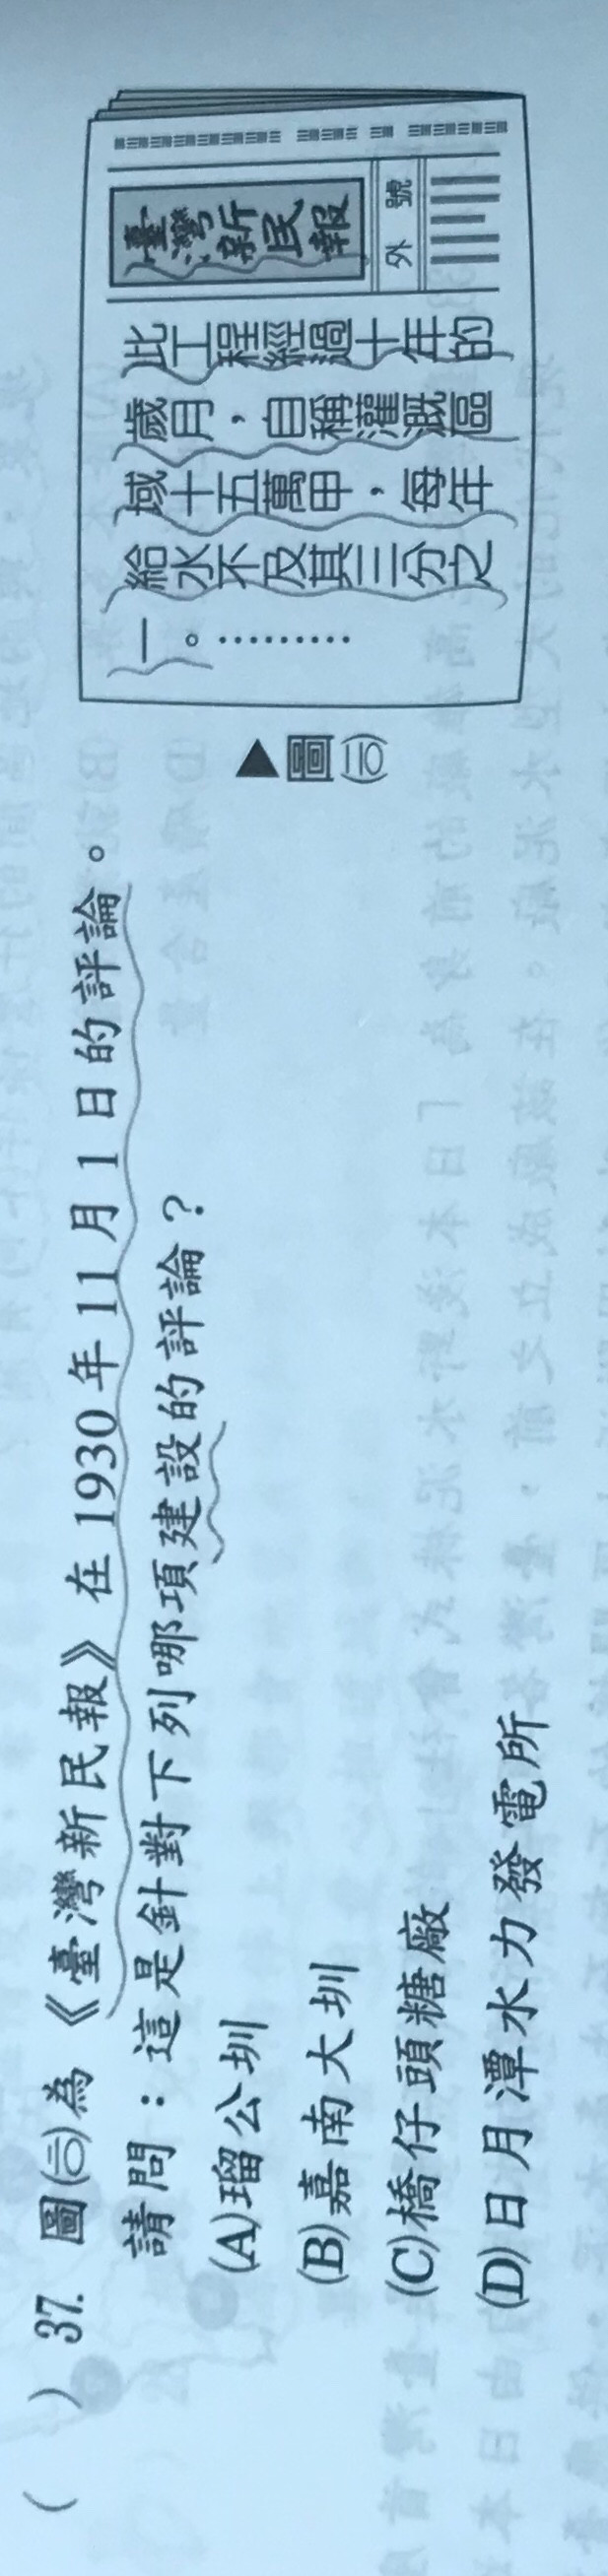 ( ) 37. 圖㈡為《臺灣新民報》在1930年11月1日的評論。
請問：這是針對下列哪項建設的評論？
(A)瑠公圳
(B)嘉南大圳
(C)橋仔頭糖廠
(D)日月潭水力發電所
臺灣新民報
外號
此工程經過十年的
歲月，自稱灌溉區
域十五萬甲，每年
給水不及其三分之
一。………
▲圖㈡